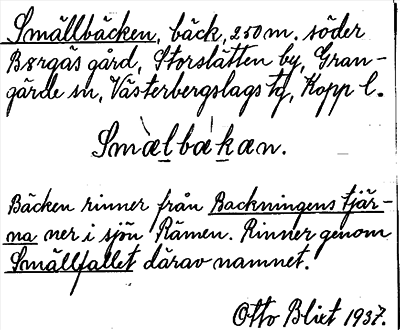 Smällbäcken, bäck, 250 m. söder
Bergås gård, Storslätten by, Gran-
gärde sn, Västerbergslags tg, Kopp l.
Smæ̀lbákæn.
Bäcken rinner från Backningens tjär-
na ner i sjön Rämen. Rinner genom
Smällfallet därav namnet.
Otto Blixt 1937.